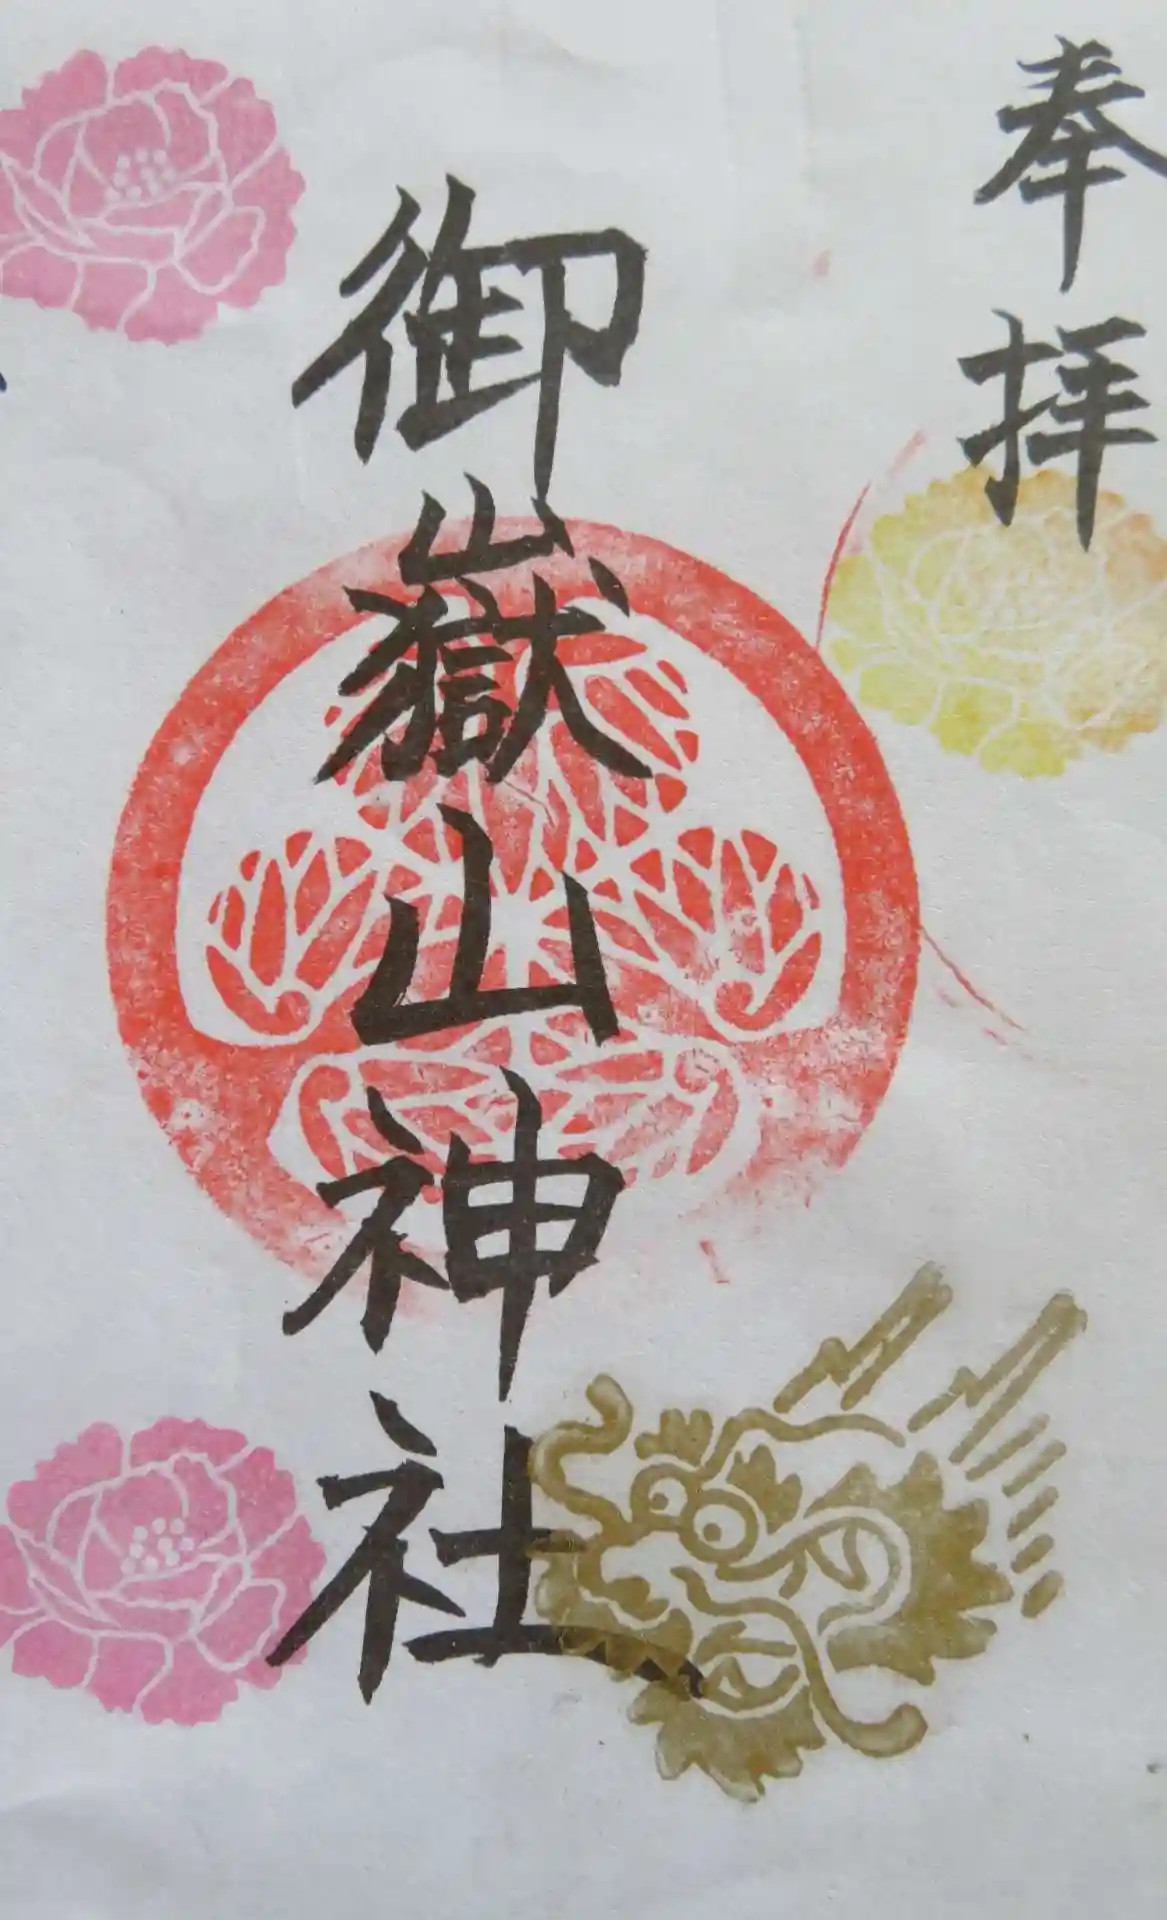 奉拝
御嶽山神社